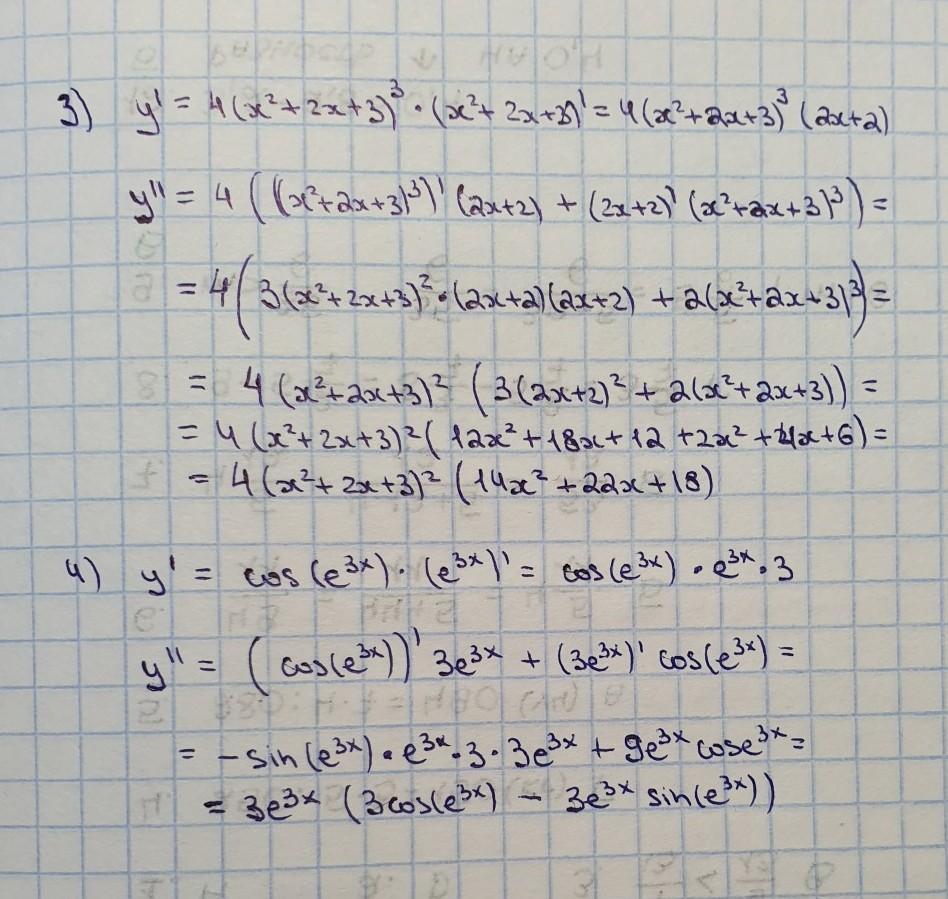 3) y' = 4(x²+2x+3)³ · (x²+2x+3)' = 4(x²+2x+3)³ (2x+2)
y'' = 4 (((x²+2x+3)³)' (2x+2) + (2x+2)' (x²+2x+3)³) =
= 4(3(x²+2x+3)² · (2x+2)(2x+2) + 2(x²+2x+3)³) =
= 4(x²+2x+3)² (3(2x+2)² + 2(x²+2x+3)) =
= 4(x²+2x+3)² (12x²+18x+12+2x²+4x+6) =
= 4(x²+2x+3)² (14x²+22x+18)
4) y' = cos(e³ˣ) · (e³ˣ)' = cos(e³ˣ) · e³ˣ · 3
y'' = (cos(e³ˣ))' 3e³ˣ + (3e³ˣ)' cos(e³ˣ) =
= -sin(e³ˣ) · e³ˣ · 3 · 3e³ˣ + 9e³ˣ cose³ˣ =
= 3e³ˣ (3cos(e³ˣ) - 3e³ˣ sin(e³ˣ))